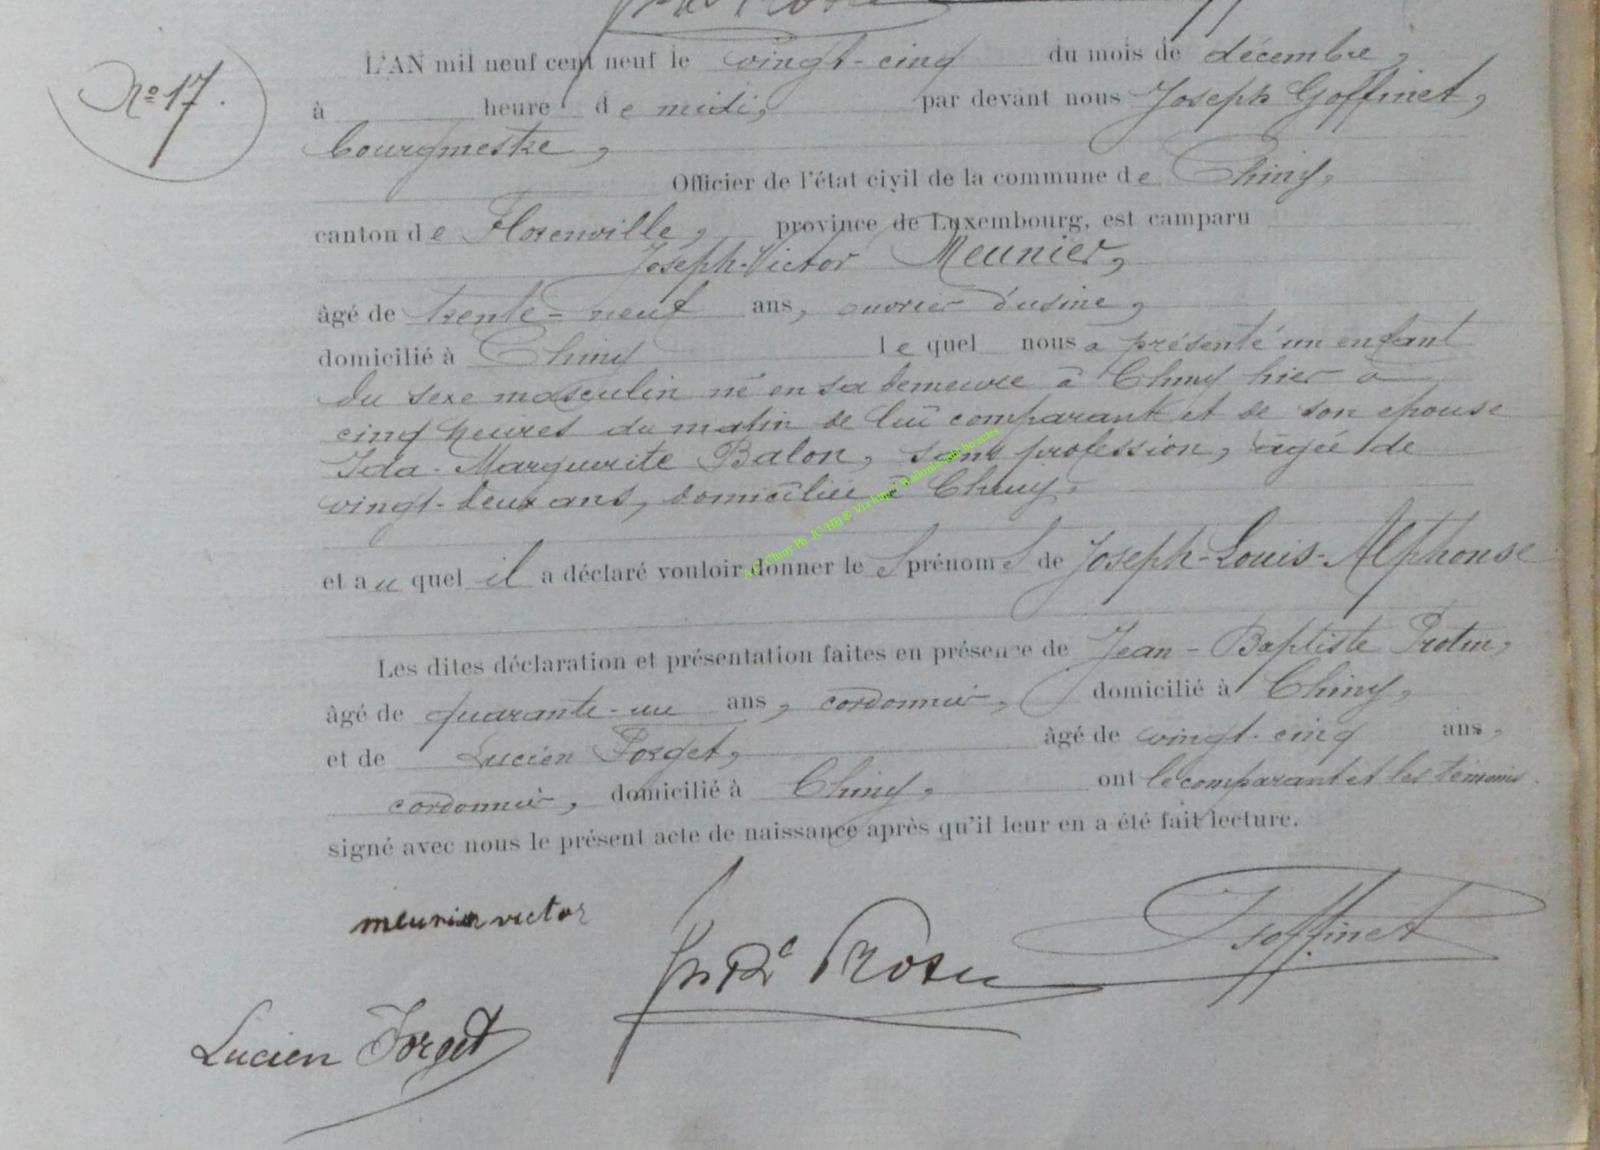 L'AN mil neuf cent neuf le vingt-cinq du mois de décembre,
N° 17.
à heure de midi, par devant nous Joseph Goffinet,
bourgmestre,
Officier de l'état civil de la commune de Chiny,
canton de Florenville, province de Luxembourg, est camparu
Joseph-Victor Meunier,
âgé de trente-neuf ans, ouvrier d'usine,
domicilié à Chiny le quel nous a présenté un enfant
du sexe masculin né en sa demeure à Chiny hier à
cinq heures du matin de lui comparant et de son épouse
Ida-Marguerite Balon, sans profession, âgée de
vingt-deux ans, domiciliée à Chiny.
et au quel il a déclaré vouloir donner le S prénom S de Joseph-Louis-Alphonse
Les dites déclaration et présentation faites en présence de Jean-Baptiste Protin,
âgé de quarante-un ans, cordonnier, domicilié à Chiny,
et de Lucien Forget, âgé de vingt-cinq ans,
cordonnier, domicilié à Chiny, ont le comparant et les témoins
signé avec nous le présent acte de naissance après qu'il leur en a été fait lecture.
meunier victor
Goffinet
Lucien Forget